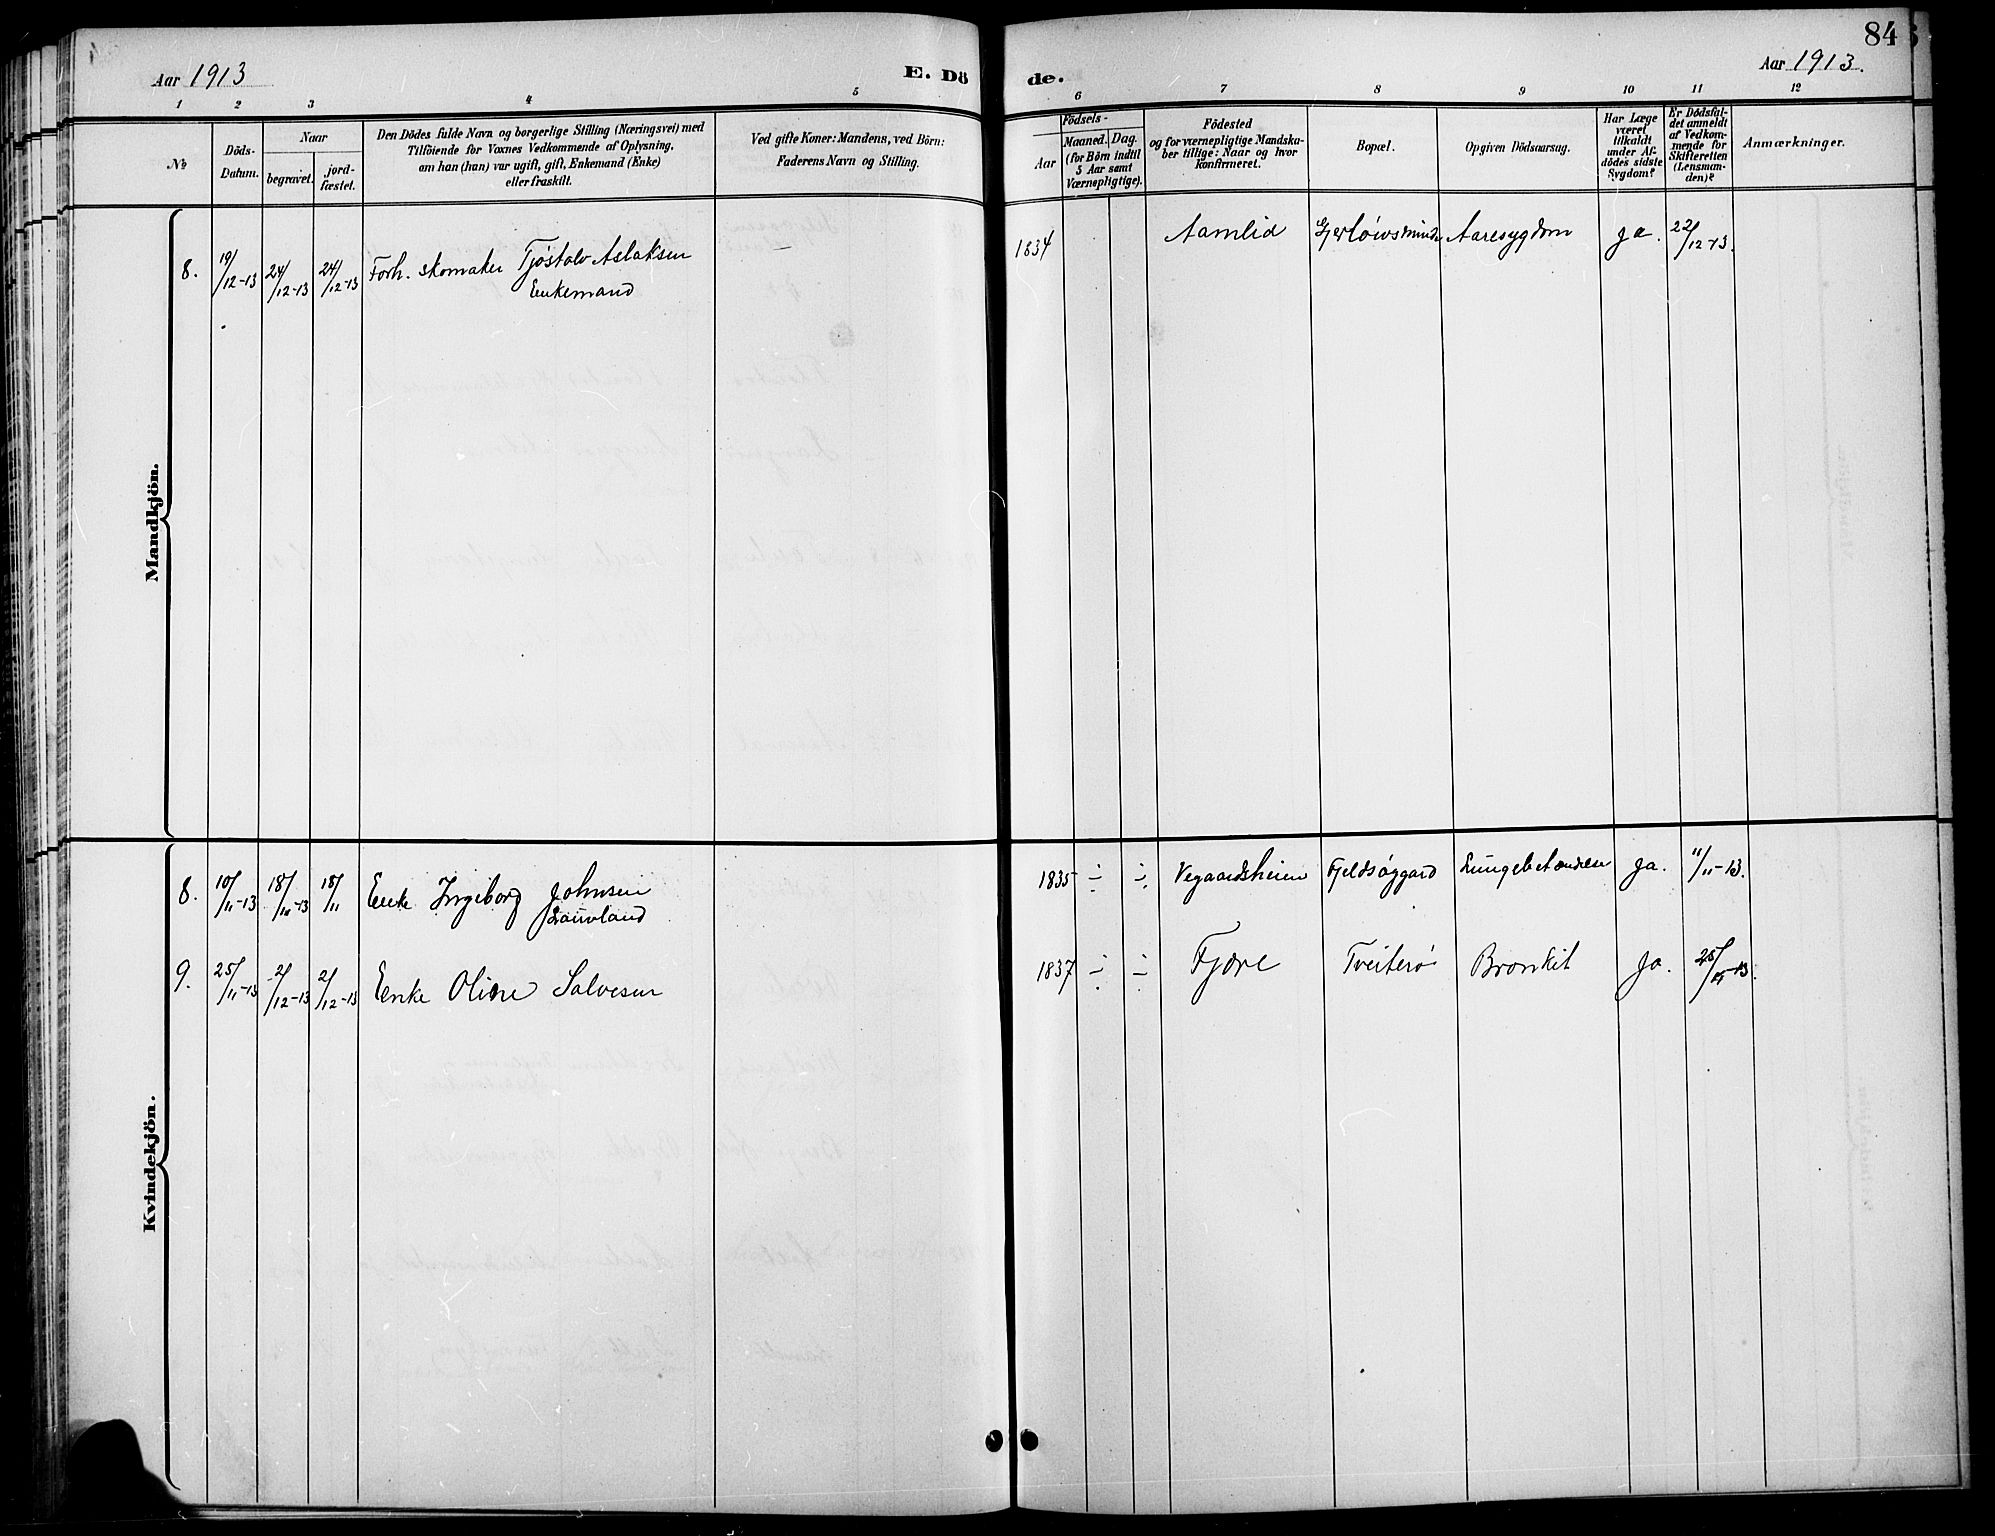 84
Aar 1913
E. Dö
de.
Aar 1913.
1 2 3 4 5 6 7 8 9 10 11 12
No
Döds-
Datum.
Naar
begravet.
jord-
fæstet.
Den Dödes fulde Navn og borgerlige Stilling (Næringsvei) med
Tilföiende for Voxnes Vedkommende af Oplysning,
om han (hun) var ugift, gift, Enkemand (Enke)
eller fraskilt.
Ved gifte Koner: Mandens, ved Börn:
Faderens Navn og Stilling.
Födsels-
Aar
Maaned.
Dag.
(for Börn indtil
5 Aar samt
Værnepligtige).
Födested
og for værnepligtige Mandska-
ber tillige: Naar og hvor
konfirmeret.
Bopæl.
Opgiven Dödsaarsag.
Har Læge
været
tilkaldt
under Af-
dödes sidste
Sygdom?
Er Dödsfal-
det anmeldt
af Vedkom-
mende for
Skifteretten
(Lensman-
den)?
Anmærkninger.
Mandkjön.
8. 19/12-13 24/12-13 24/12-13 Forh. skomaker Tjøstolv Aslaksen — 1834 Aamlid Gjerløwsminde Aaresygdom ja. 22/12-13.
Enkemand
Kvindekjön.
8. 10/11-13 18/11-13 18/11 Enke Ingeborg Johnsen 1835 ÷ ÷ Vegaardsheien Fjeldsøggard Lungebetændelse ja. 11/11-13.
Lauvland
9. 25/11-13 2/12-13 2/12-13 Enke Oline Salvesen 1837 ÷ ÷ Fjære Tveiterø Bronkit ja.